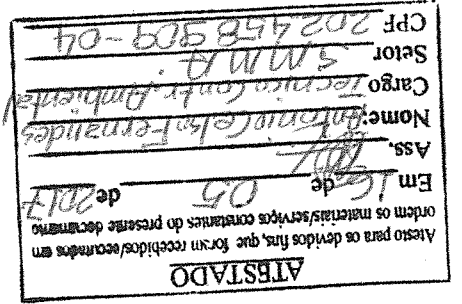 ATESTADO
Atesto para os devidos fins, que foram recebidos/executados em
ordem os materiais/serviços constantes do presente documento
Em 16 de 05 de 2017
Ass.
Nome: Antonio Celso Fernandes
Cargo Técnico Contr. Ambiental
Setor S.M.M.A.
CPF 202458909-04